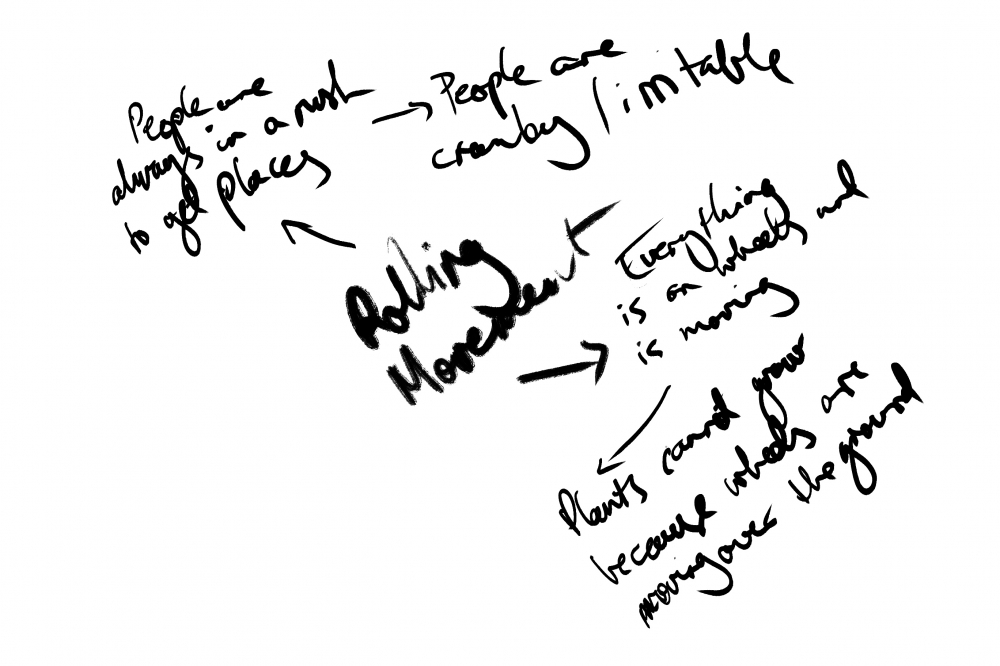 People are
always in a rush
to get places
People are
cranky / irritable
Rolling
Movement
Everything
is on wheels and
is moving
Plants cannot grow
because wheels are
moving over the ground